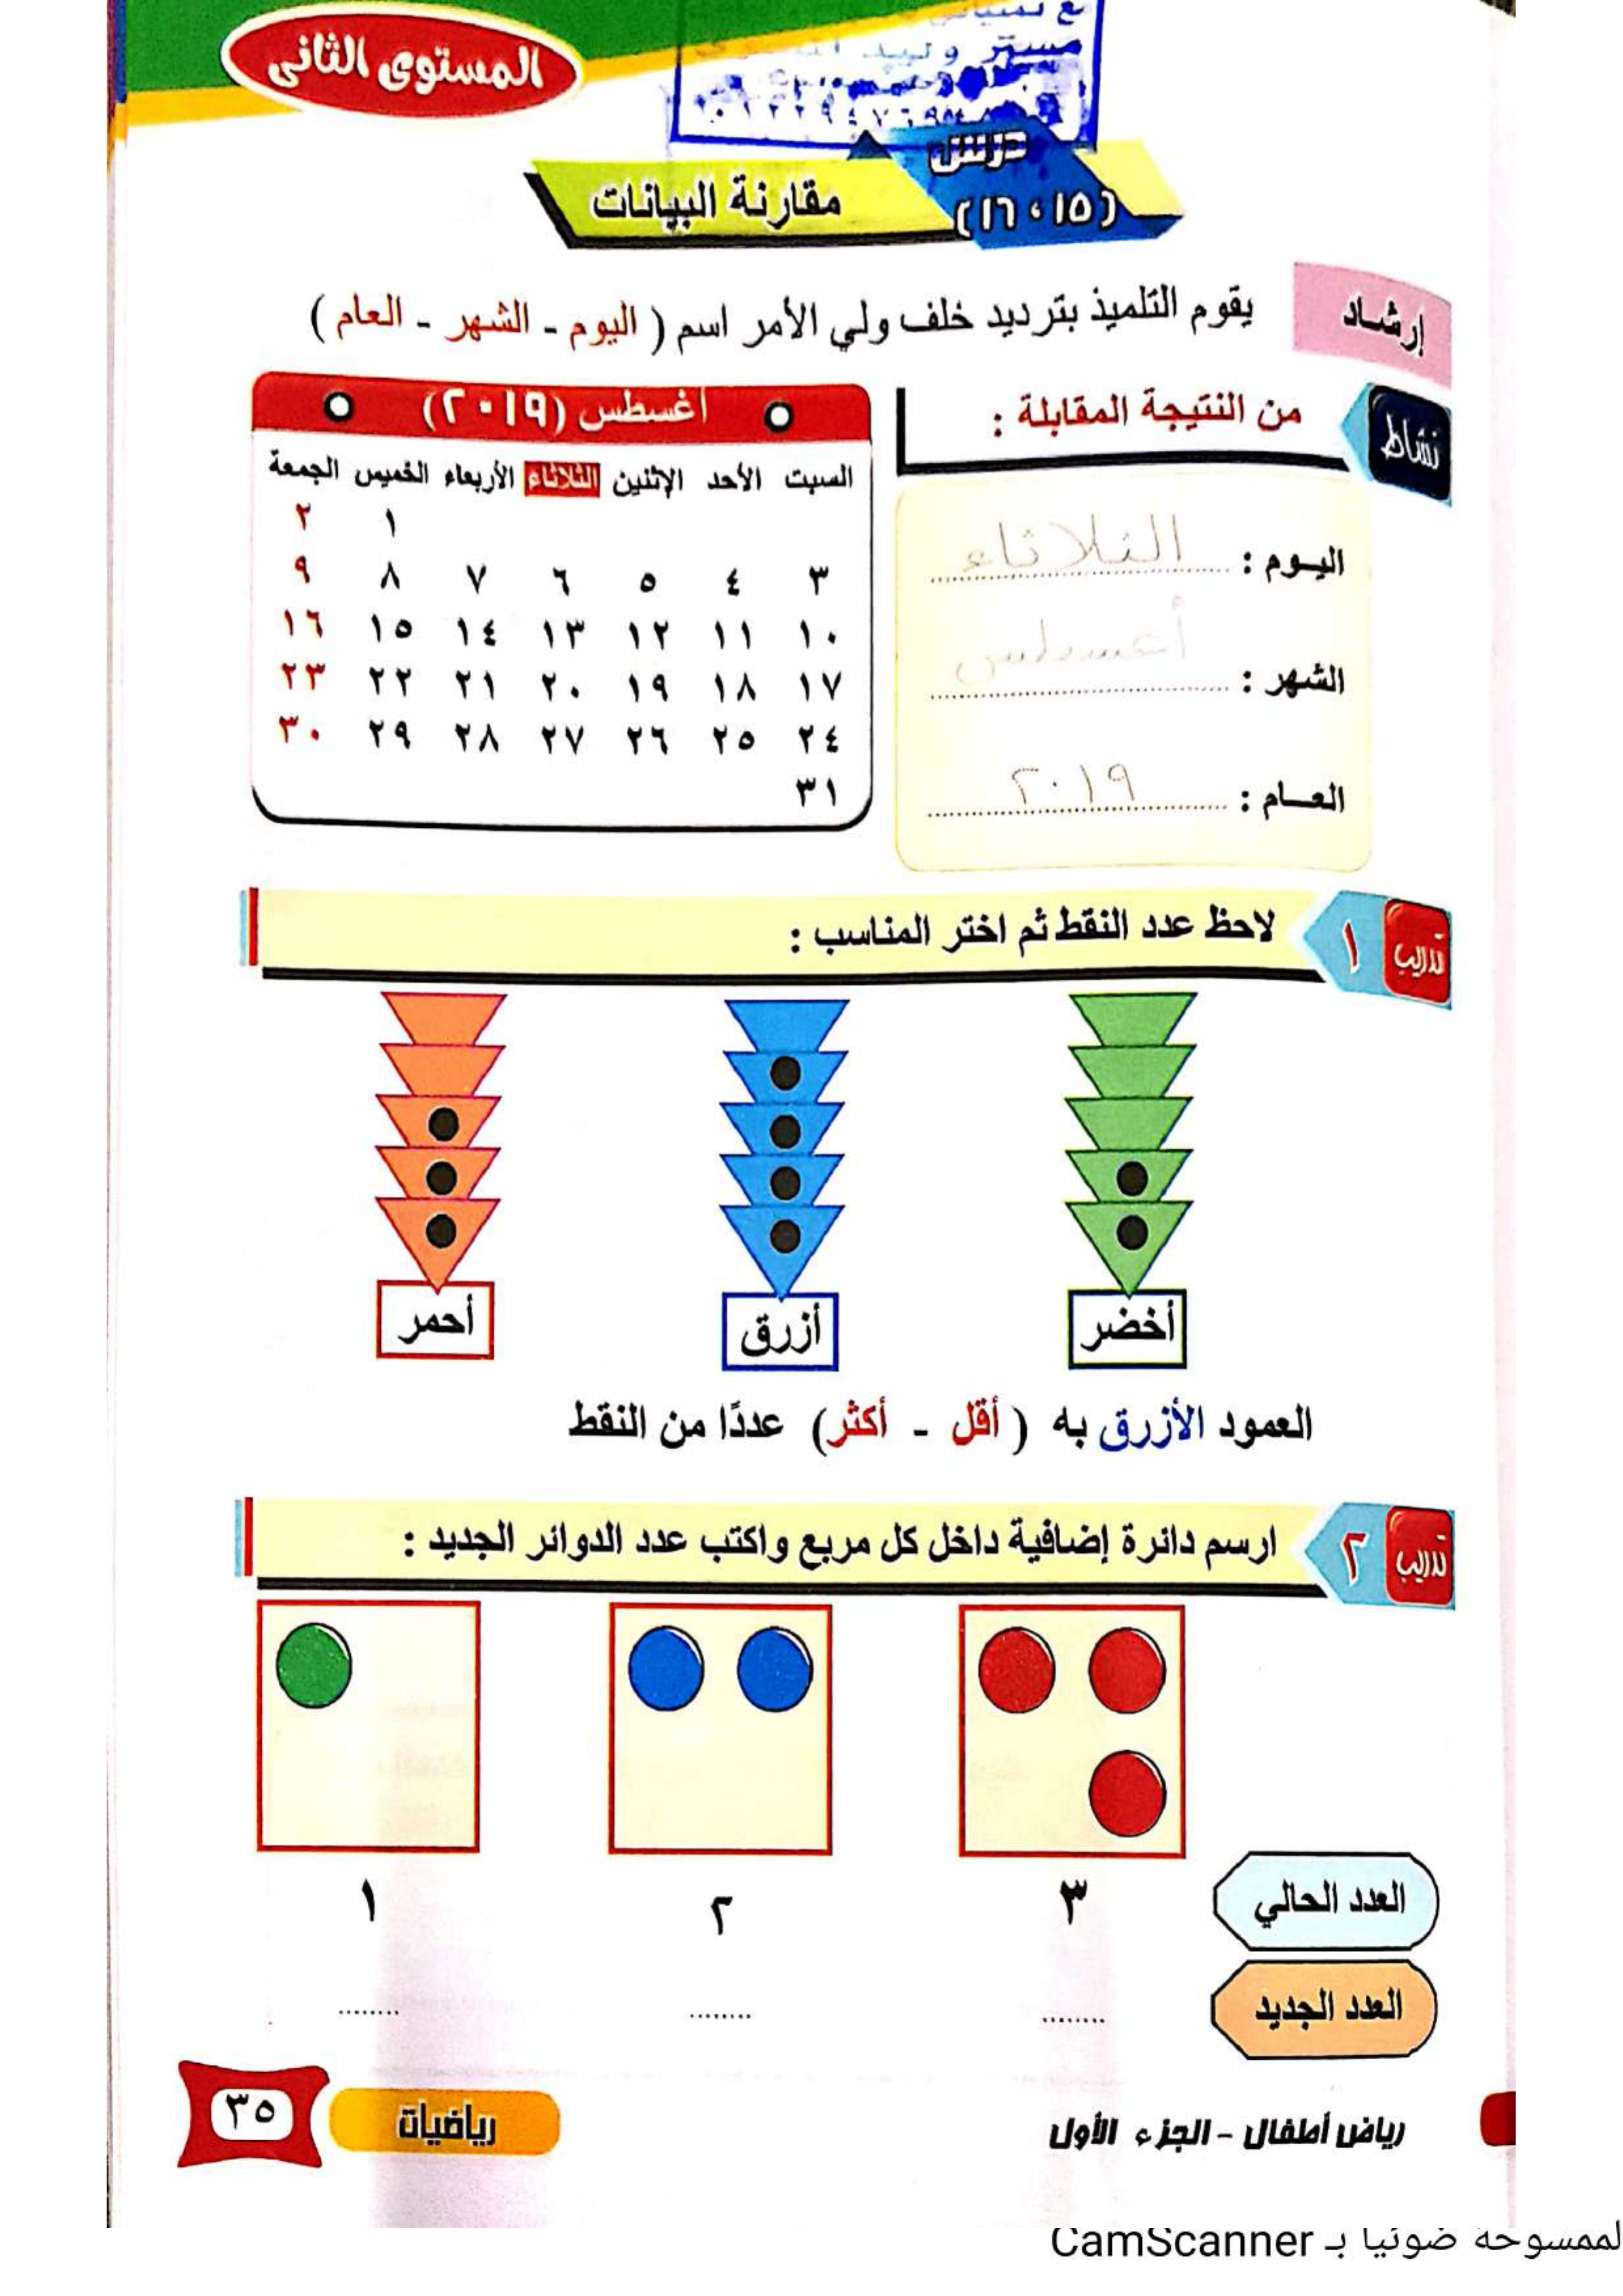 المستوى الثانى
درس
(١٥ ، ١٦)
مقارنة البيانات
إرشاد
يقوم التلميذ بترديد خلف ولي الأمر اسم ( اليوم - الشهر - العام )
نشاط
من النتيجة المقابلة :
اليـوم : الثلاثاء
الشهر : أغسطس
العـام : ٢٠١٩
أغسطس (٢٠١٩)
السبت الأحد الإثنين الثلاثاء الأربعاء الخميس الجمعة
١ ٢
٣ ٤ ٥ ٦ ٧ ٨ ٩
١٠ ١١ ١٢ ١٣ ١٤ ١٥ ١٦
١٧ ١٨ ١٩ ٢٠ ٢١ ٢٢ ٢٣
٢٤ ٢٥ ٢٦ ٢٧ ٢٨ ٢٩ ٣٠
٣١
تدريب ١
لاحظ عدد النقط ثم اختر المناسب :
أخضر أزرق أحمر
العمود الأزرق به ( أقل - أكثر) عددًا من النقط
تدريب ٢
ارسم دائرة إضافية داخل كل مربع واكتب عدد الدوائر الجديد :
العدد الحالي ٣ ٢ ١
العدد الجديد ........ ........ ........
رياض أطفال - الجزء الأول
رياضيات
٣٥
الممسوحة ضوئيا بـ CamScanner